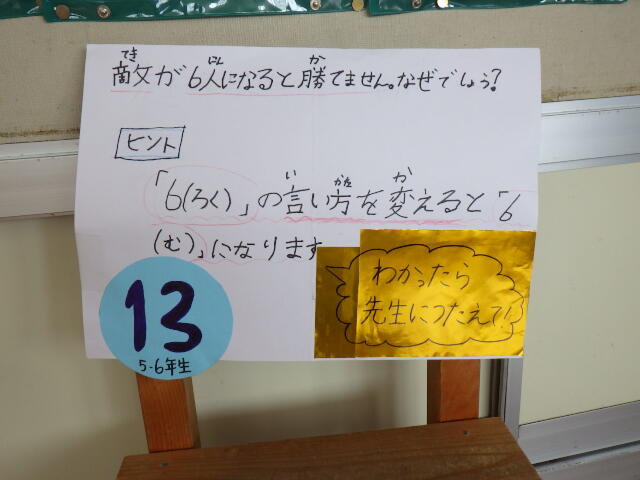 てき にん か
敵が6人になると勝てません。なぜでしょう?
ヒント
い かた か
「6(ろく)」の言い方を変えると「6
(む)」になります
わかったら
先生につたえて!
13
5-6年生